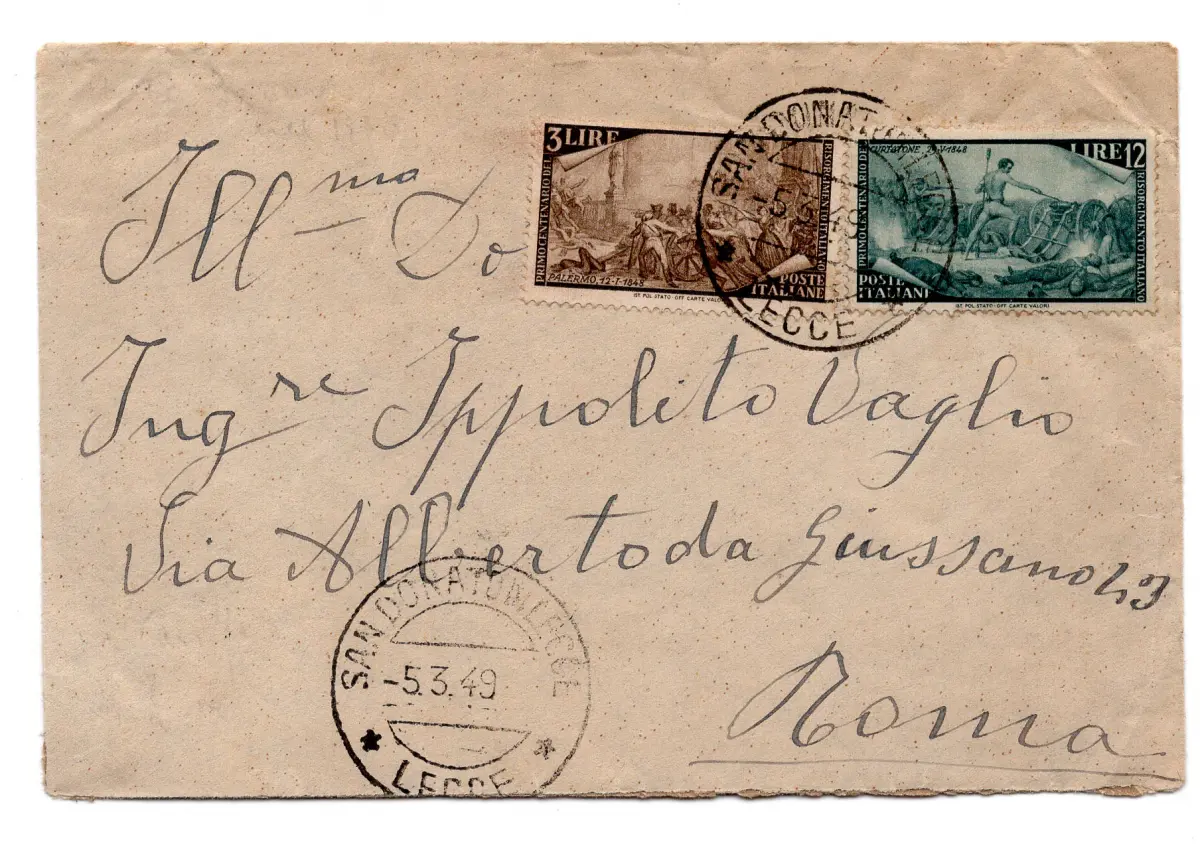 3 LIRE
PRIMO CENTENARIO DEL
RISORGIMENTO ITALIANO
PALERMO, 12-I-1848
POSTE
ITALIANE
IST. POL. STATO - OFF. CARTE VALORI
CURTATONE, 29-V-1848
LIRE 12
PRIMO CENTENARIO DEL
RISORGIMENTO ITALIANO
POSTE
ITALIANE
IST. POL. STATO - OFF. CARTE VALORI
SAN DONATO DI LECCE
-5.3.49
LECCE
Ill ma Do
Ing re Ippolito Vaglio
Via Alberto da Giussano
Roma
SAN DONATO DI LECCE
-5.3.49
LECCE